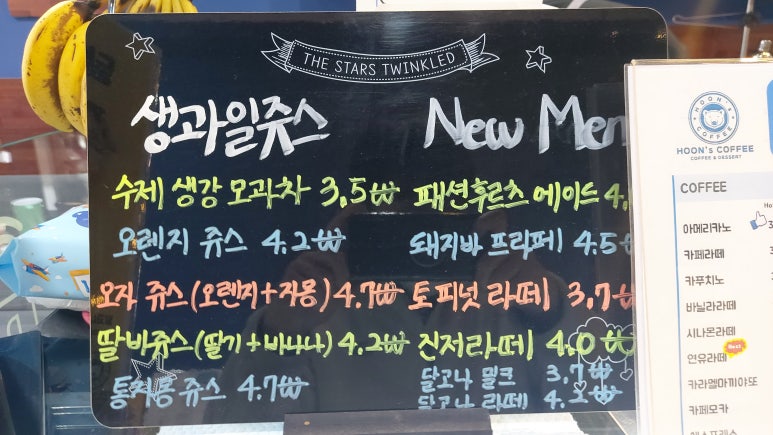 THE STARS TWINKLED
생과일쥬스
수제 생강 모과차 3,5₩
오렌지 쥬스 4.2₩
오자 쥬스(오렌지+자몽) 4.7₩
딸바쥬스(딸기+바나나) 4.2₩
통착통 쥬스 4.7₩
New Men
패션후르츠 에이드 4.
돼지바 프라페 4.5
토피넛 라떼 3.7
진저라떼 4.0₩
달고나 밀크 3.7₩
달고나 라떼
HOON's COFFEE
HOON's COFFEE
COFFEE & DESSERT
COFFEE
아메리카노
카페라떼
카푸치노
바닐라라떼
시나몬라떼
연유라떼 Best
카라멜마끼야또
카페모카